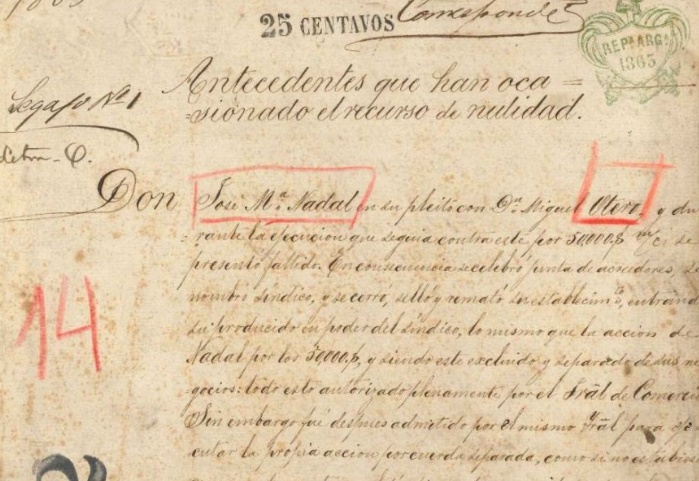 1865
25 CENTAVOS
Corresponde
REP. ARG.
1865
Antecedentes que han oca=
=sionado el recurso de nulidad.
Legajo Nº 1
Letra-O.
Don José Mª. Nadal en su pleito con Dn. Miguel Otero y du
=rante la ejecucion que seguia contra este por 50,000,p m/c se
presentó fallido. En consecuencia se celebró junta de acreedores, se
nombró síndico, y se cerró, selló y remató su establecimto, entrando
su producido en poder del síndico, lo mismo que la accion de
Nadal por los 50000,p, y siendo este excluido y separado de sus ne
gocios: todo esto autorizado plenamente por el Trãl de Comercio
Sin embargo fué despues admitido por el mismo Trãl para eje
cutar la propia accion por cuerda separada, como si no estubiese
14